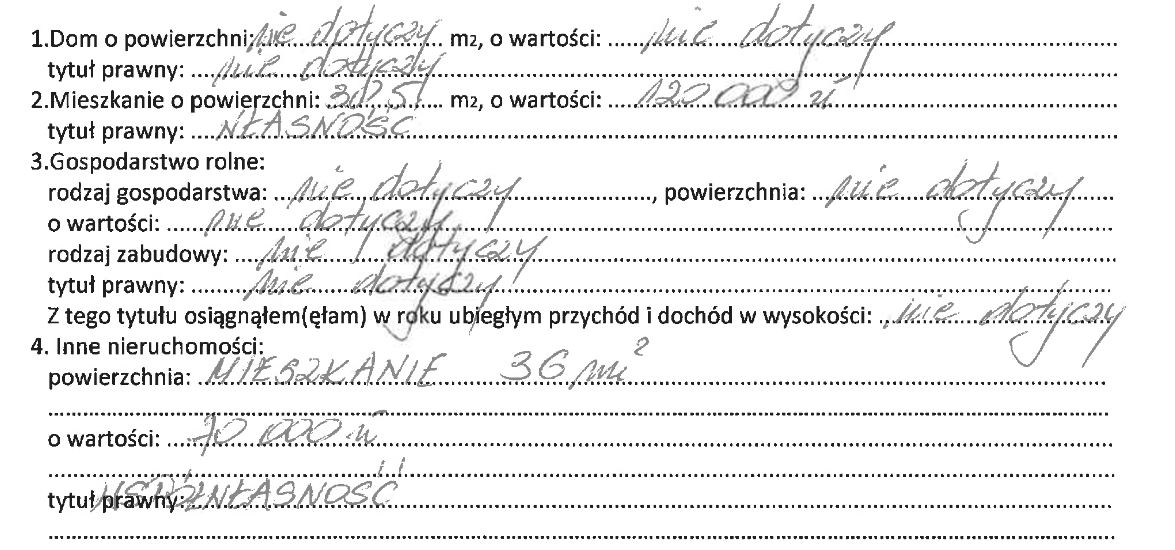 1.Dom o powierzchni: nie dotyczy m2, o wartości: nie dotyczy
tytuł prawny: nie dotyczy
2.Mieszkanie o powierzchni: m2, o wartości: 120 000 zł
tytuł prawny: WŁASNOŚĆ
3.Gospodarstwo rolne:
rodzaj gospodarstwa: nie dotyczy, powierzchnia: nie dotyczy
o wartości: nie dotyczy
rodzaj zabudowy: nie dotyczy
tytuł prawny: nie dotyczy
Z tego tytułu osiągnąłem(ęłam) w roku ubiegłym przychód i dochód w wysokości: nie dotyczy
4. Inne nieruchomości:
powierzchnia: MIESZKANIE 36 m²
o wartości: 70 000 zł
tytuł prawny: WSPÓŁWŁASNOŚĆ